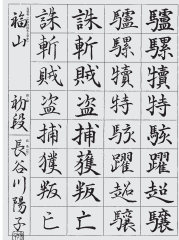 驢騾犢特駭躍超驤
驢騾犢特駭躍超驤
誅斬賊盗捕獲叛亡
誅斬賊盗捕獲叛亡
福山 初段 長谷川陽子